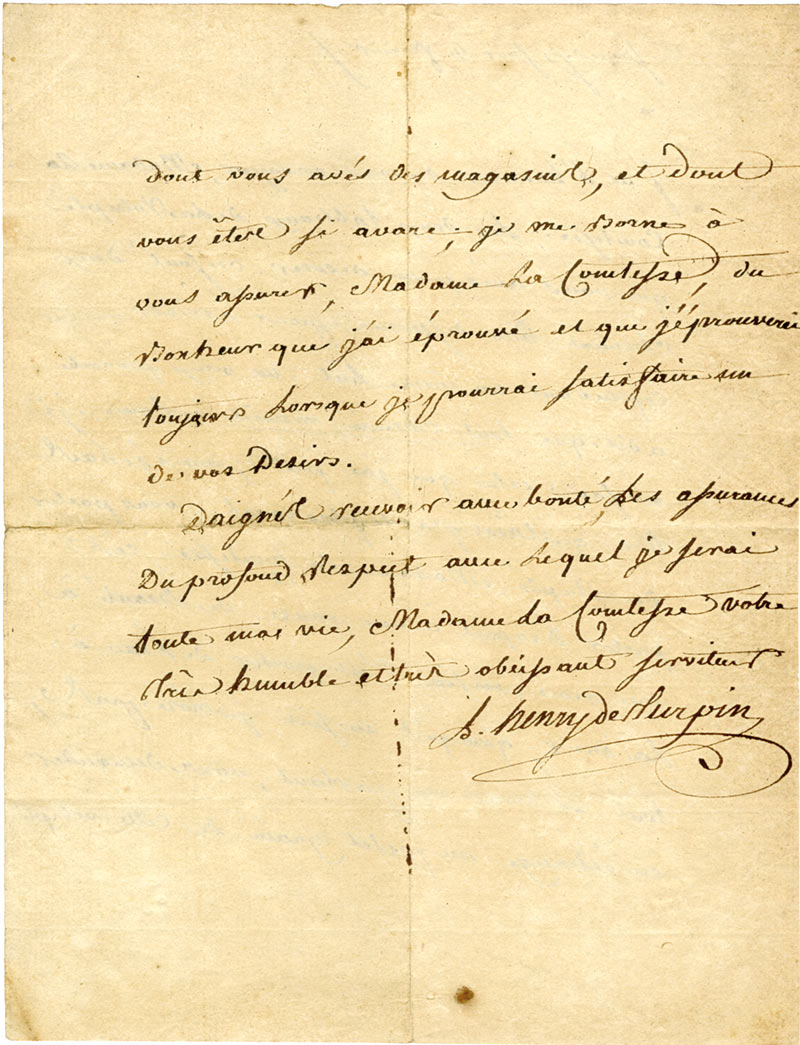 dont vous avés des magasins, et dont
vous êtes si avare; je me Borne à
vous assurer, Madame La Comtesse, du
Bonheur que j'ai éprouvé et que j'éprouverai
toujours Lorsque je pourrai satisfaire un
de vos Desirs.
Daignés recevoir avec bonté, Les assurances
Du profond Respect avec Lequel je serai
toute ma vie, Madame La Comtesse votre
très humble et très obéissant serviteur
henry de Turpin